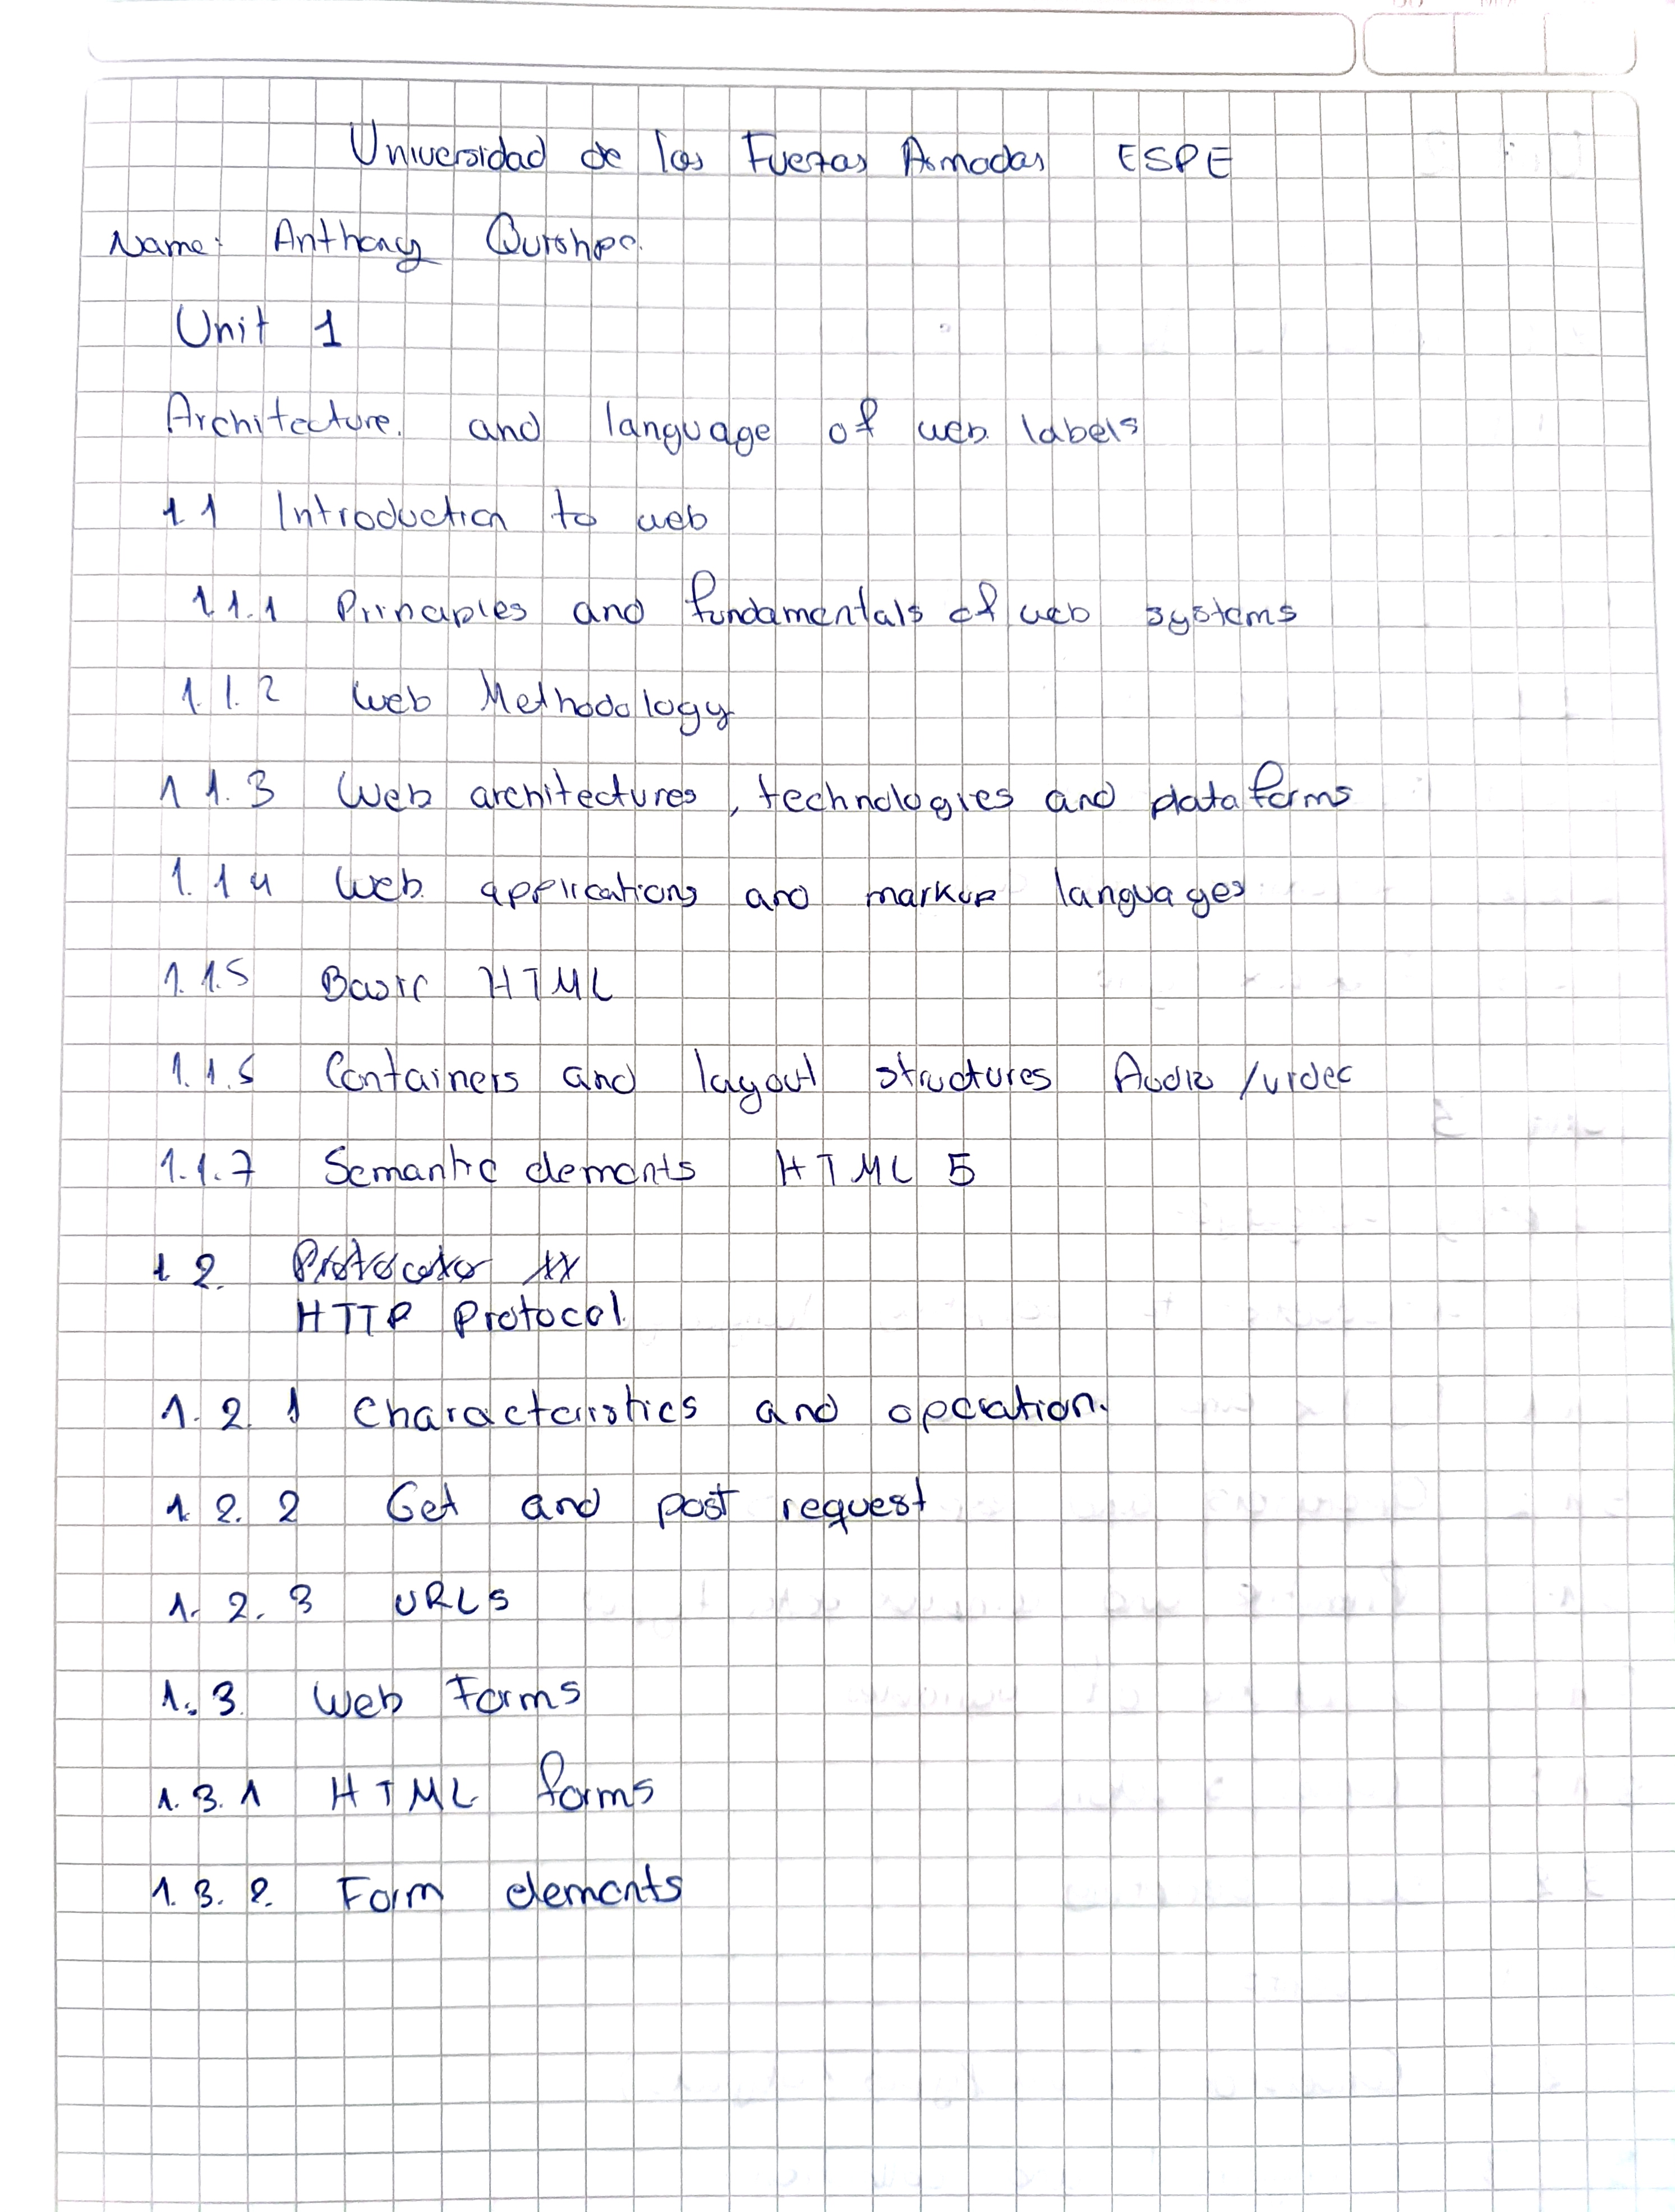 Universidad de las Fuerzas Armadas ESPE
Name: Anthony Quishpe.
Unit 1
Architecture. and language of web labels
1.1 Introduction to web
1.1.1 Principles and fundamentals of web systems
1.1.2 Web Methodology
1.1.3 Web architectures, technologies and data forms
1.1.4 Web applications and markup languages
1.1.5 Basic HTML
1.1.6 Containers and layout structures Audio /video
1.1.7 Semantic elements HTML 5
1.2.
HTTP Protocol
1.2.1 Characteristics and operation.
1.2.2 Get and post request
1.2.3 URLs
1.3. Web Forms
1.3.1 HTML forms
1.3.2. Form elements